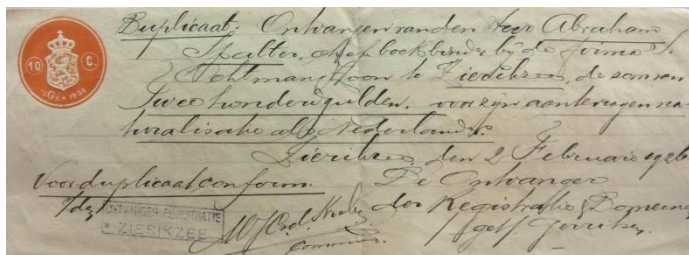 Duplicaat. Ontvangen van den Heer Abraham
Spalter, chef boekbinder bij de firma S.
Ochtman & Zoon te Zierikzee, de som van
Twee honderd gulden, voor zijn aantevragen na
turalisatie als Nederlander.
Zierikzee, den 2 Februari 1926
Voor duplicaat conform. De Ontvanger
der Registratie & Domeinen
ONTVANGER REGISTRATIE
ZIERIKZEE
get. Gerritsen
10 C.
1926